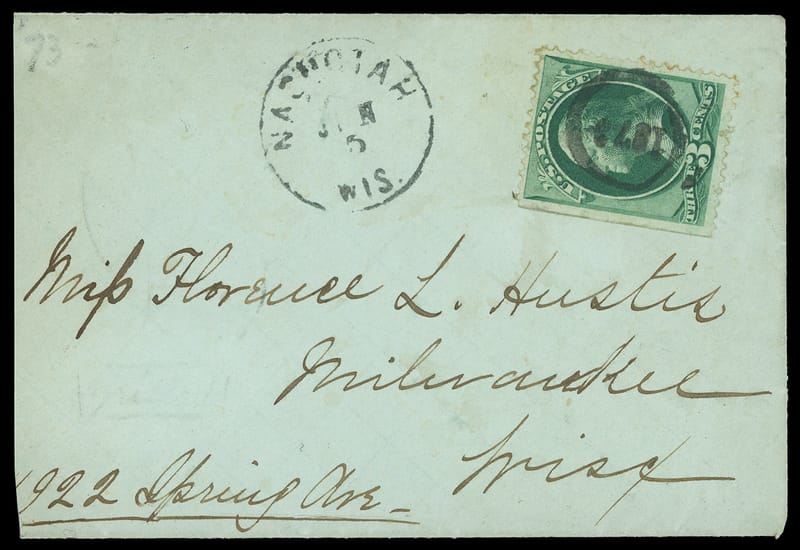 73
NASHOTAH
JUN
5
WIS.
U.S. POSTAGE
THREE 3 CENTS
187
Miss Florence L. Hustis
Milwaukee
Wisc
1922 Spring Ave